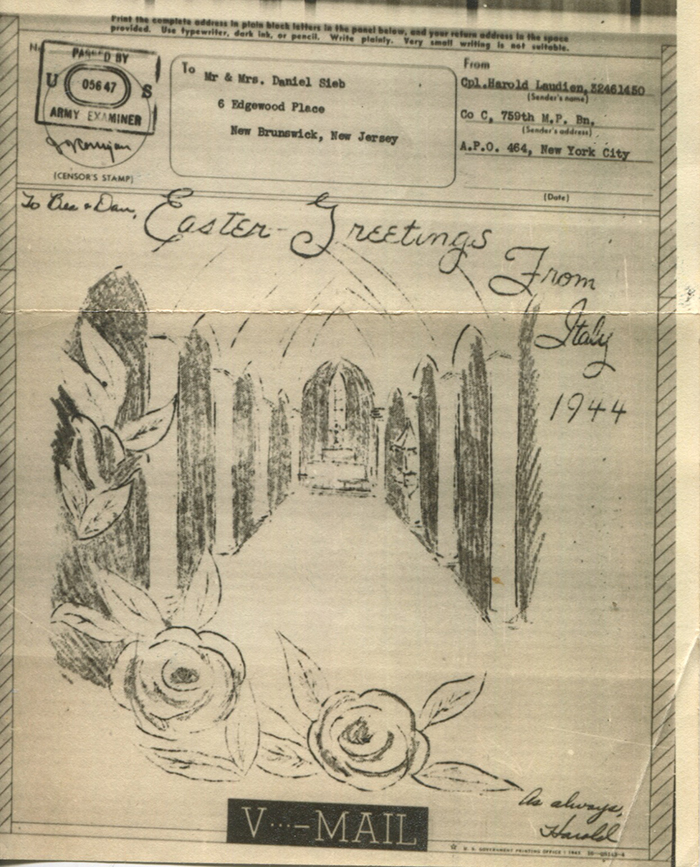 Print the complete address in plain block letters in the panel below, and your return address in the space
provided. Use typewriter, dark ink, or pencil. Write plainly. Very small writing is not suitable.
No.
PASSED BY
U 05647 S
ARMY EXAMINER
(CENSOR'S STAMP)
To
Mr & Mrs. Daniel Sieb
6 Edgewood Place
New Brunswick, New Jersey
From
Cpl.Harold Laudien,32461450
(Sender's name)
Co C, 759th M.P. Bn,
(Sender's address)
A.P.O. 464, New York City
(Date)
To Bee & Dan,
Easter Greetings
From
Italy
1944
As always,
Harold
V···-MAIL
U. S. GOVERNMENT PRINTING OFFICE : 1943